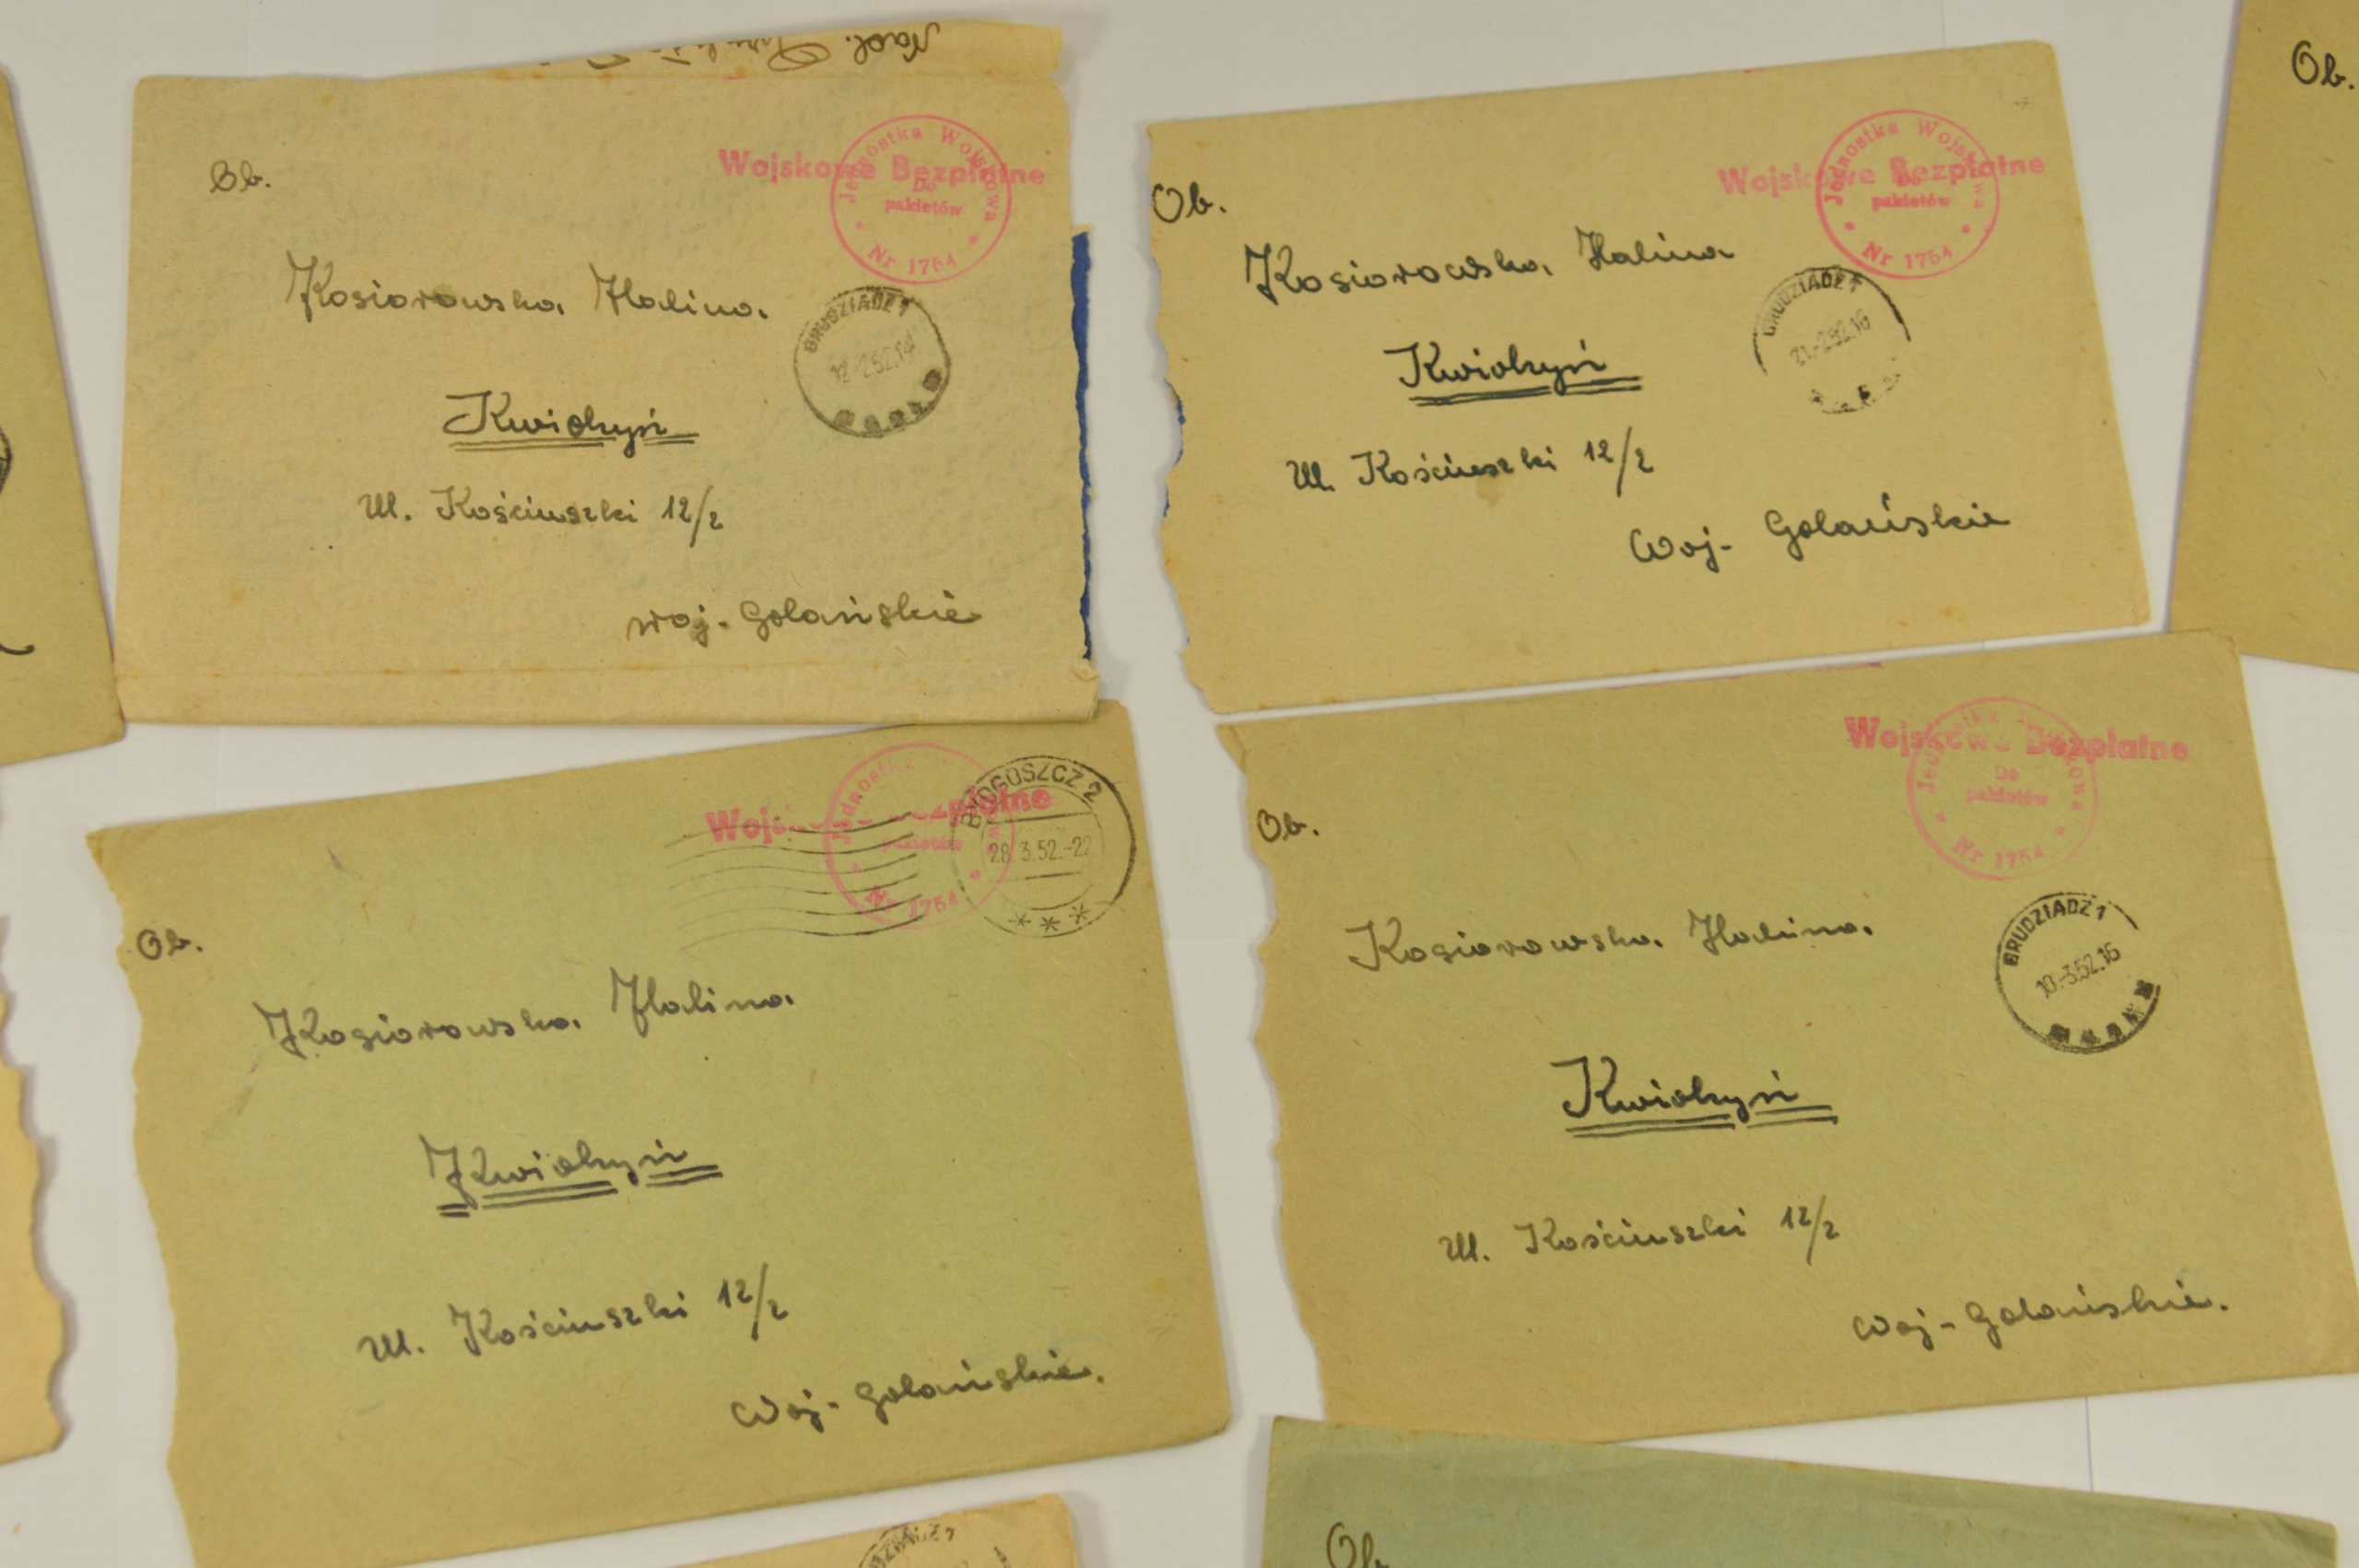 Nadl.
Ob.
Wojskowe Bezpłatne
Jednostka Wojskowa
Do
pakietów
Nr 1754
Kosiorowska Halina.
GRUDZIĄDZ 1
12.-2.52.14
Kwidzyń
Ul. Kościuszki 12/2
woj. Gdańskie
Ob.
Wojskowe Bezpłatne
Jednostka Wojskowa
Do
pakietów
Nr 1754
Kosiorowska Halina
GRUDZIĄDZ 1
21.-2.52.16
Kwidzyń
Ul. Kościuszki 12/2
Woj- Gdańskie
Ob.
Wojskowe Bezpłatne
Jednostka
pakietów
Nr 1754
BYDGOSZCZ 2
28.3.52.-22
Ob.
Kosiorowska Halina
Kwidzyń
Ul. Kościuszki 12/2
Woj- Gdańskie.
Wojskowe Bezpłatne
Jednostka Wojskowa
Do
pakietów
Nr 1754
Ob.
Kosiorowska Halina.
GRUDZIĄDZ 1
10.-3.52.16
Kwidzyń
Ul. Kościuszki 12/2
Woj- Gdańskie.
Ob